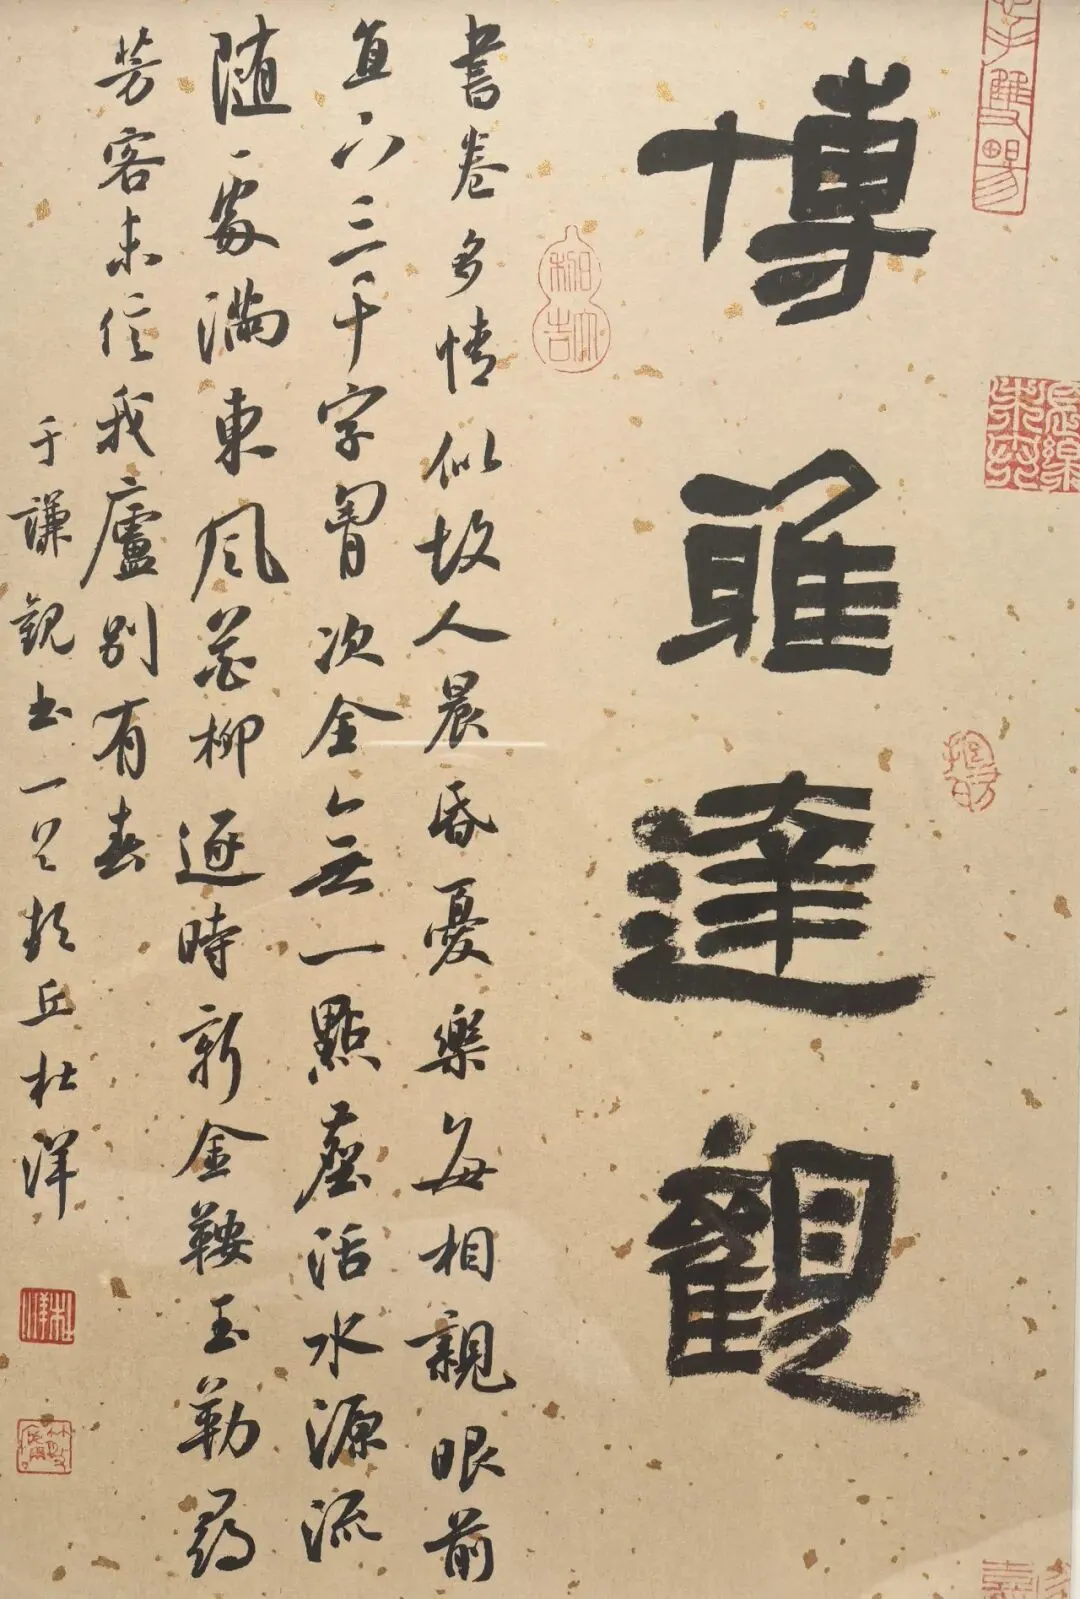 博雅達觀
書卷多情似故人晨昏憂樂每相親眼前
直下三千字胷次全無一點塵活水源流
隨處滿東風花柳逐時新金鞍玉勒尋
芳客未信我廬別有春
于謙觀書一首頓丘杜洋
杜洋